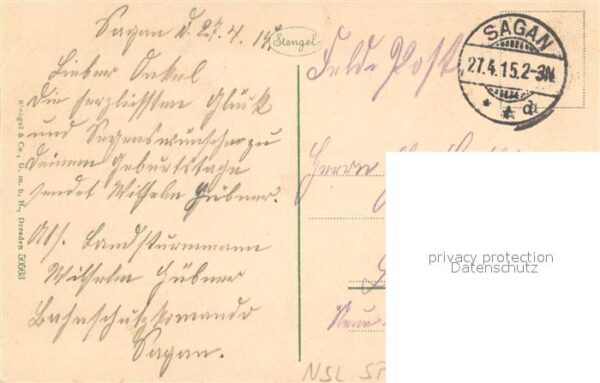 Sagan d. 27.4.15.
Lieber Onkel
die herzlichsten Glück
und Segenswünsche zu
deinem Geburtstage
sendet Wilhelm Hübner.
Abs. Landsturmmann
Wilhelm Hübner
Bahnschutzkomando
Sagan.
Stengel & Co., G. m. b. H., Dresden 50568
Stengel
Feld-Post
SAGAN
27.4.15.2-3N.
* * d
Herrn
privacy protection
Datenschutz
NSL